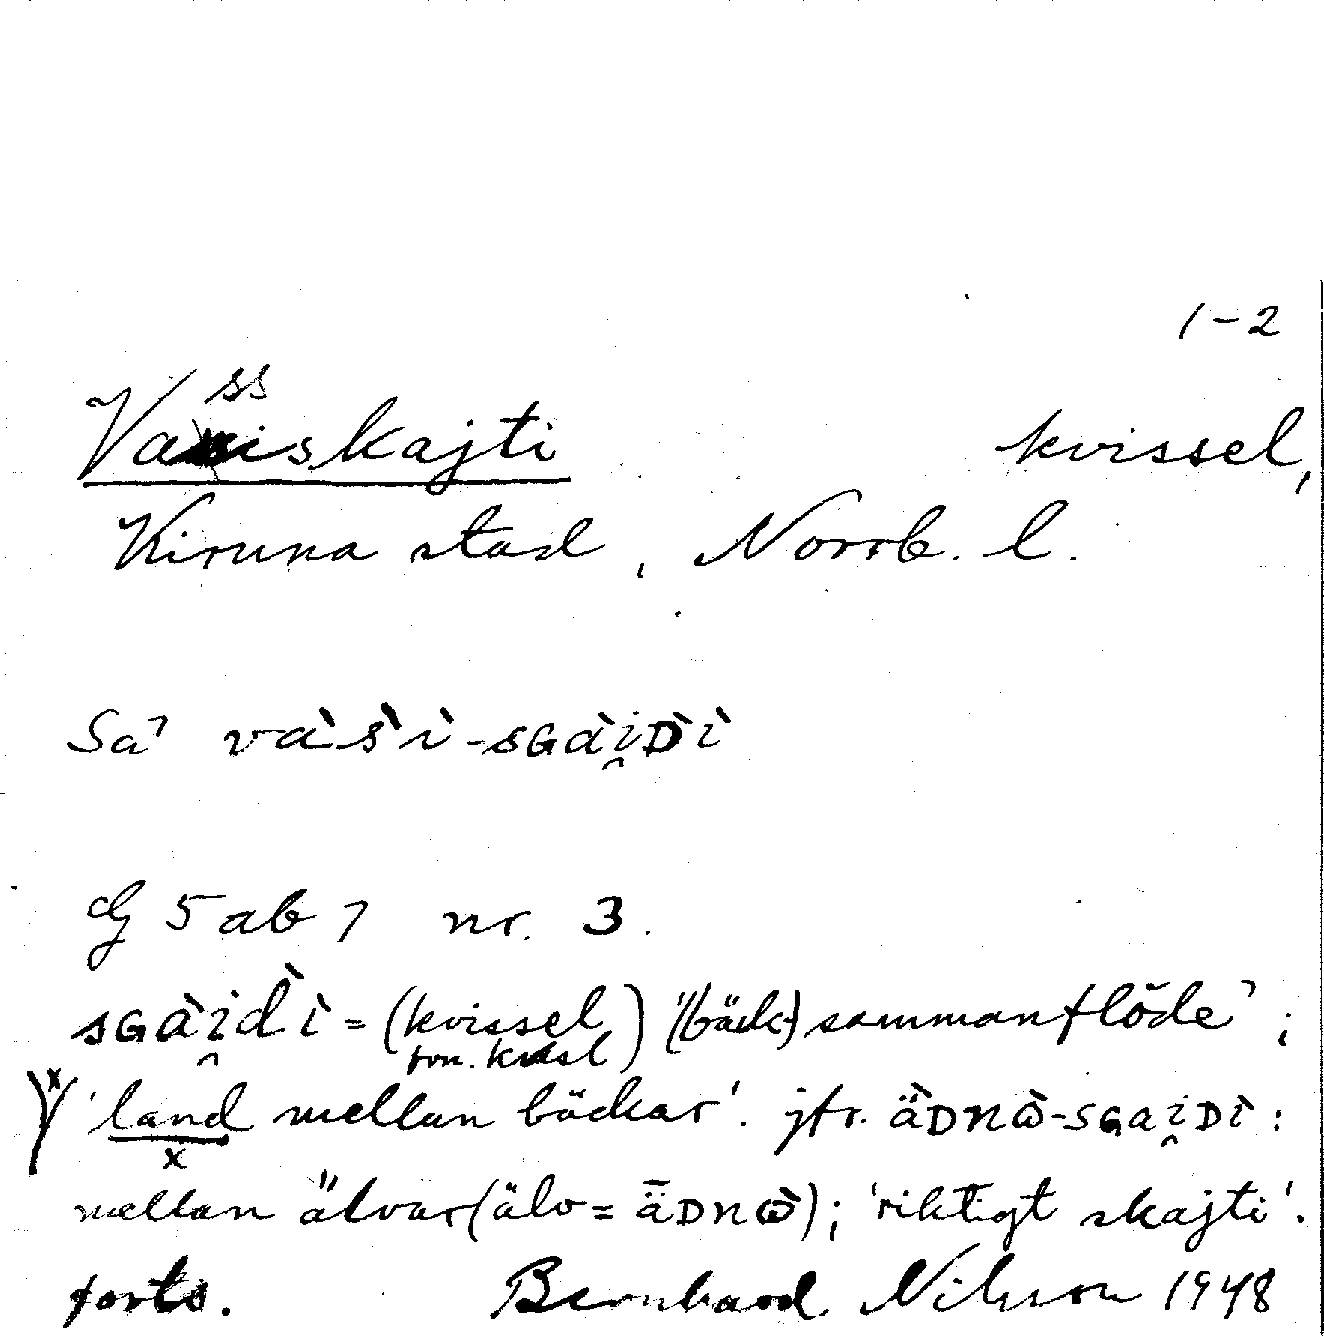 1-2
Vassiskajti kvissel,
Kiruna stad, Norrb. l.
Sa' vàs̀ì-sGài̯D̀ì
Cf 5 ab 7 nr. 3.
sGài̯d̀ì = (kvissel fvn. kvísl) '(bäck) sammanflöde';
'land mellan bäckar'. jfr. äDnὼ-sGai̯Dì:
mellan älvar (älv = ǟDnὼ); 'riktigt skajti'.
forts. Bernhard Nilsson 1948